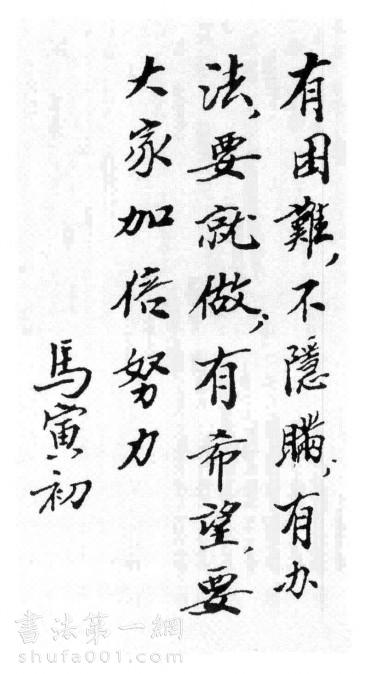 有困難,不隱瞞;有办
法,要就做;有希望,要
大家加倍努力
馬寅初
書法第一網
shufa001.com